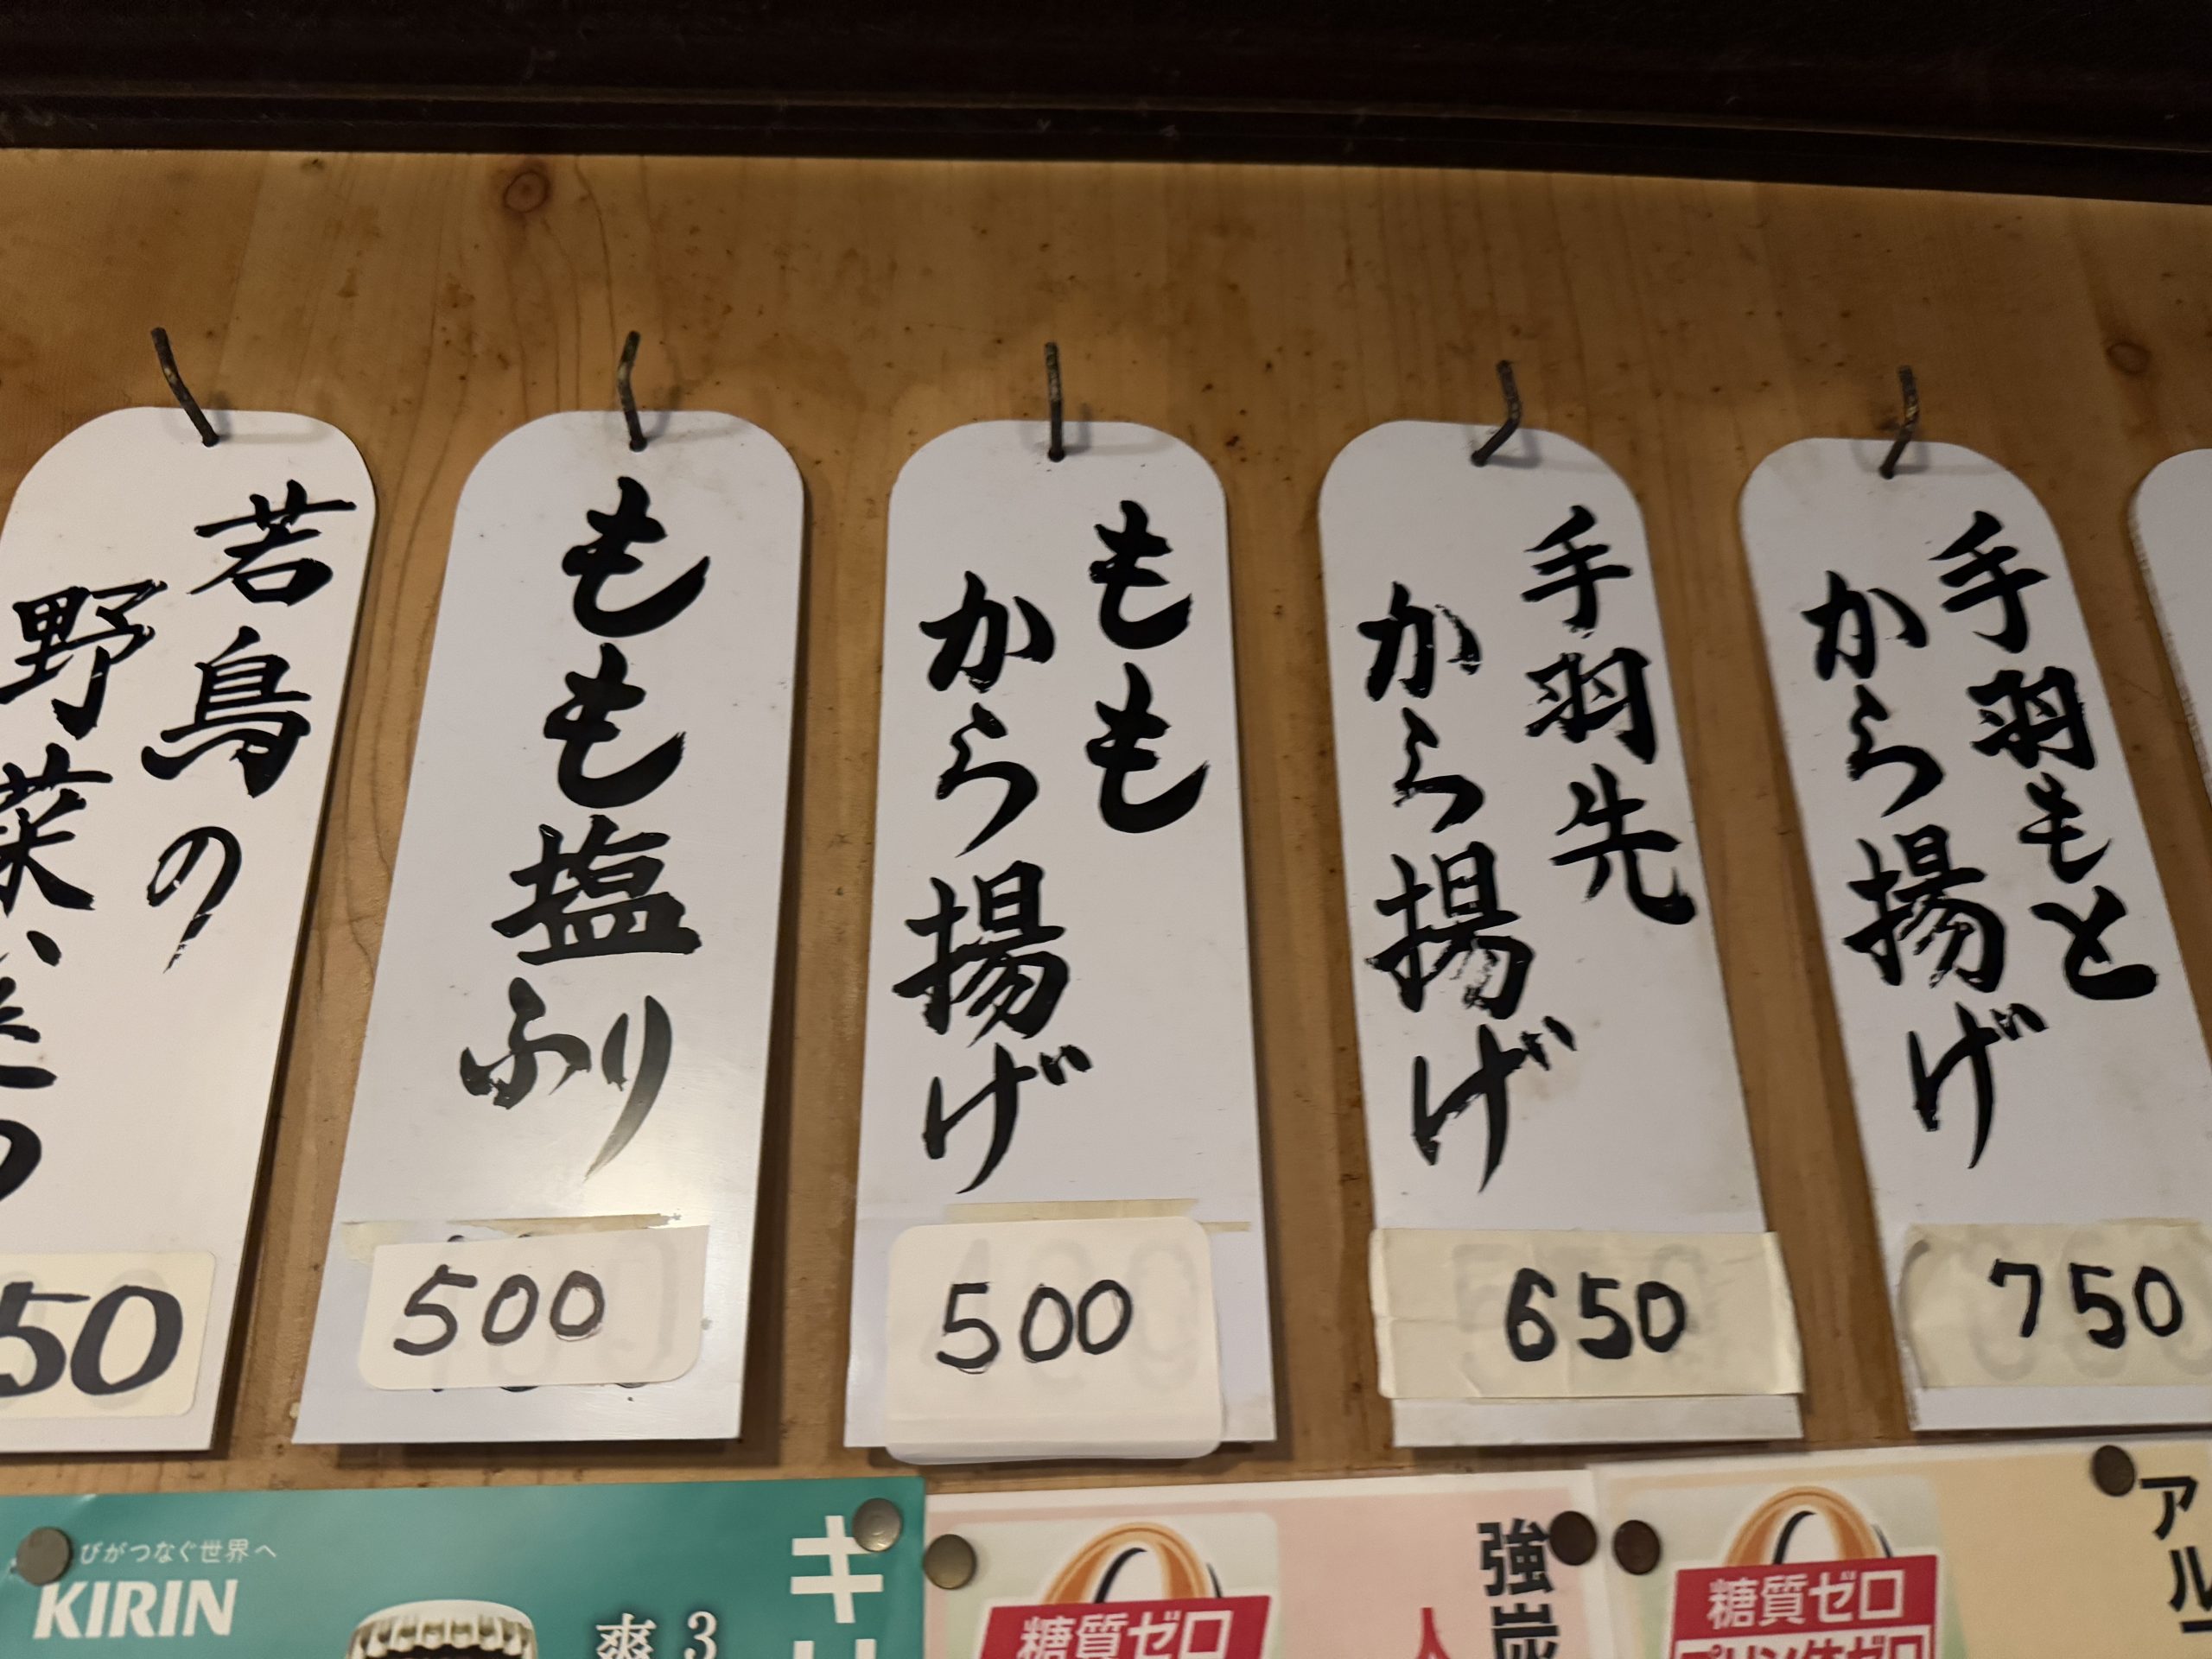 若鳥の
野菜
50
もも塩ふり
500
もも
から揚げ
500
手羽先
から揚げ
650
手羽もと
から揚げ
750
びがつなぐ世界へ
KIRIN
キ
爽
3
糖質ゼロ
強炭
糖質ゼロ
プリン体ゼロ
アル